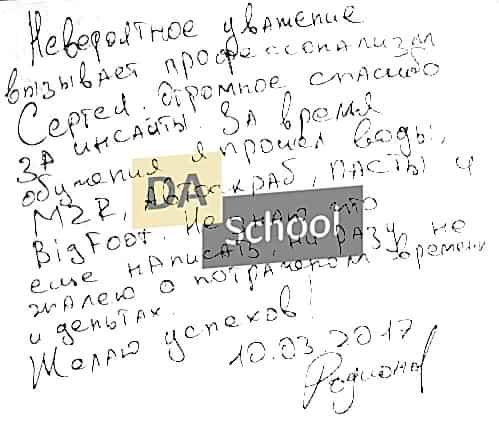 Невероятное уважение
вызывает профессионализм
Сергея. Огромное спасибо
за инсайты. За время
обучения я прошел воды,
M2R, автоскраб, пасты и
BigFoot. Не знаю что
еще написать, ни разу не
жалею о потраченом времени
и деньгах.
Желаю успехов!
10.03.2017
Родионов
DA
school